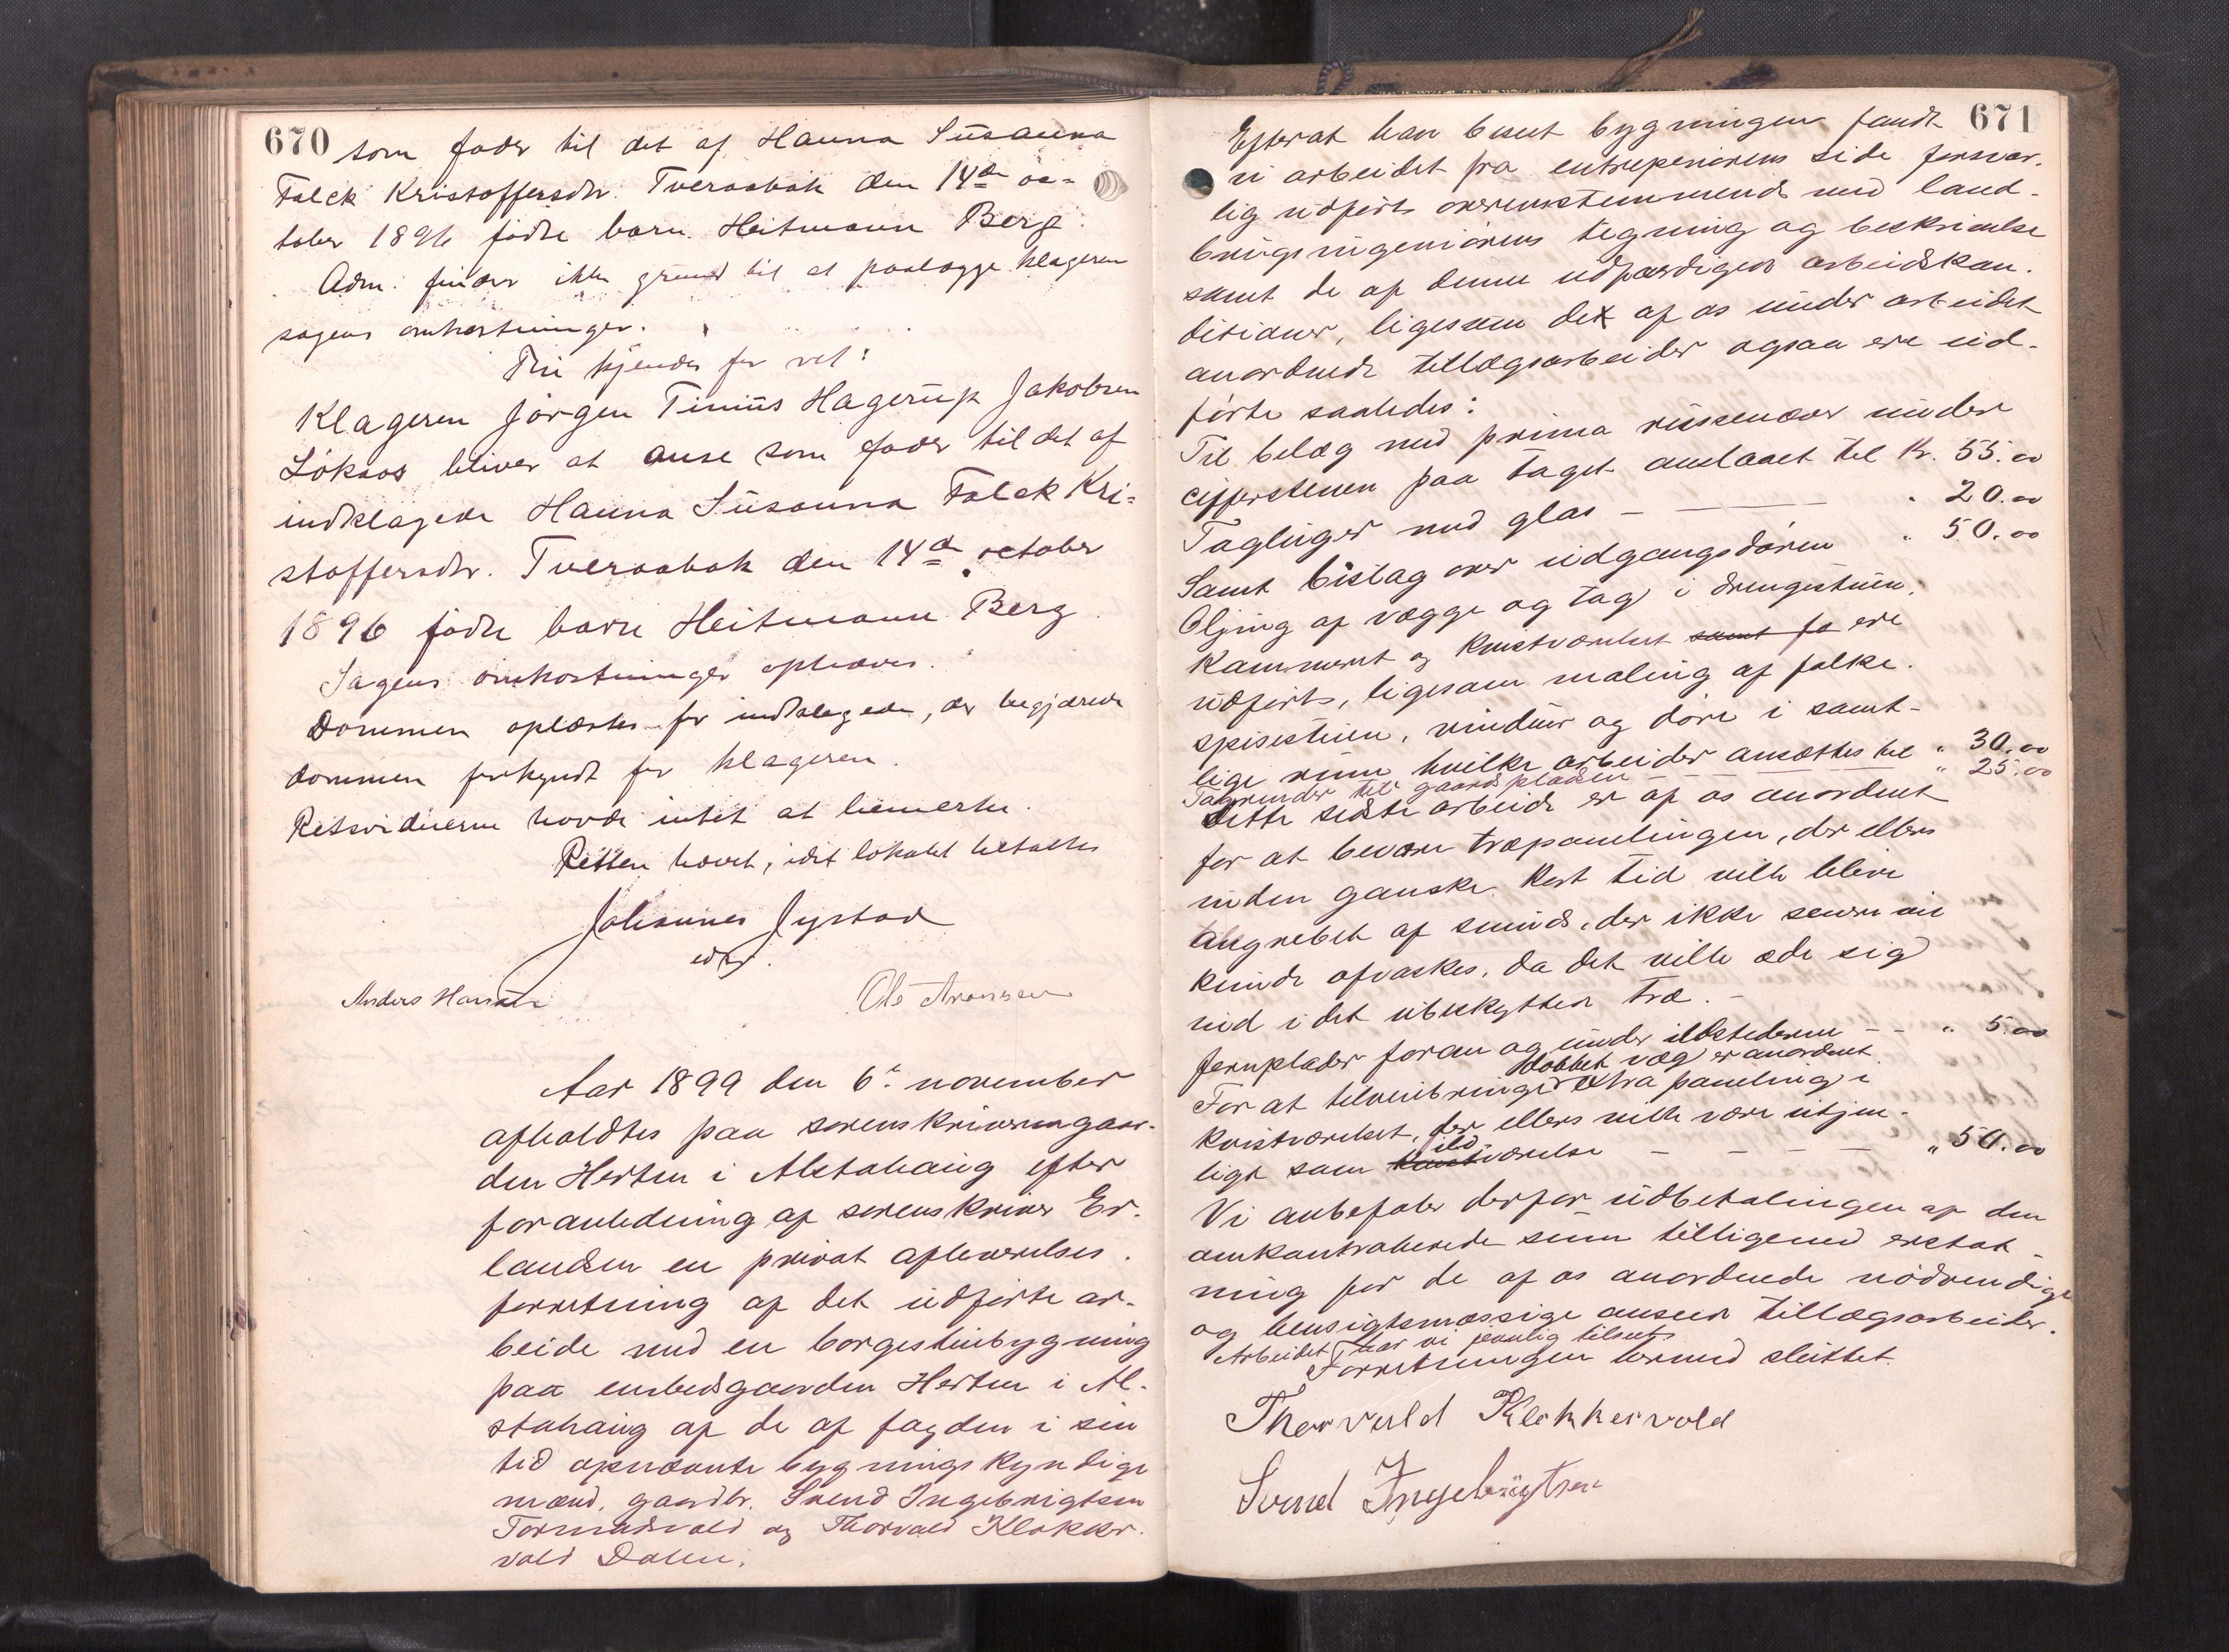 670
som fader til det af Hanna Susanna
Falck Kristoffersdtr. Tveraabak den 14de oc-
tober 1896 fødte barn Heitmann Berg.
Adm. finder ikke grund til at paalægge klageren
sagens omkostninger.
Thi kjendes for ret:
Klageren Jørgen Tinius Hagerup Jakobsen
Løksaas bliver at anse som fader til det af
indklagede Hanna Susanna Falck Kri-
stoffersdtr. Tveraabak den 14de october
1896 fødte barn Heitmann Berg
Sagens omkostninger ophæves.
Dommen oplæstes for indklagede, der begjærede
dommen forkyndt for klageren.
Retsvidnerne havde intet at bemerke.
Retten hævet, idet lokalet betaltes
Johannes Jystad
edsv.
Anders Hansen Ole Aronsen
Aar 1899 den 6te november
afholdtes paa sorenskrivergaar-
den Hesten i Alstahaug efter
foranledning af sorenskriver Er-
landsen en privat afleverelses-
forretning af det udførte ar-
beide med en borgestuebygning
paa embedsgaarden Hesten i Al-
stahaug af de af fogden i sin
tid opnævnte bygningskyndige
mænd, gaardbr. Svend Ingebrigtsen
Tormodsvold og Thorvald Klokker-
vold Dalen.
671
Efterat have beseet bygningen fandt
vi arbeidet fra entreprenørens side forsvar-
lig udført overensstemmende med land-
brugsingeniørens tegning og beskrivelse
samt de af denne udfærdigede arbeidskon-
ditioner, ligesom det af os under arbeidet
anordnede tillægsarbeider ogsaa ere ud-
førte saaledes:
Til belæg med prima russenæver under
cifferstenen paa taget anslaaet til Kr. 55.00
Tagluger med glas - — " 20.00
Samt bislag over udgangsdøren " 50.00
Oljing af vægge og tag i drengestuen,
Kammeret og kvistværelset samt fo ere
udført, ligesom maling af folke-
spisestuen, vinduer og døre i samt-
lige rum hvilke arbeider ansættes til " 30.00
Tagrender til gaardspladsen - - - " 25.00
Dette sidste arbeide er af os anordnet
for at bevare træpanelingen, der ellers
inden ganske kort tid vilde blive
angrebet af smuds, der ikke senere
kunde afvaskes, da det vilde æde sig
ind i det ubeskyttede træ. -
Jernplader foran og under ildstederne - - " 5.00
dobbel væg er anordnet
For at tilveiebringe extra paneling i
kvistværelset, der ellers vilde være utjen-
ild
ligt som kvistværelse - - - - " 50.00
Vi anbefaler derfor udbetalingen af den
omkontraherede sum tilligemed erstat-
ning for de af os anordnede nødvendige
og hensigtsmæssige ansede tillægsarbeider.
Arbeidet har vi jevnlig tilseet
Forretningen hermed sluttet.
Thorvald Klokkervold
Svend Ingebrigtsen